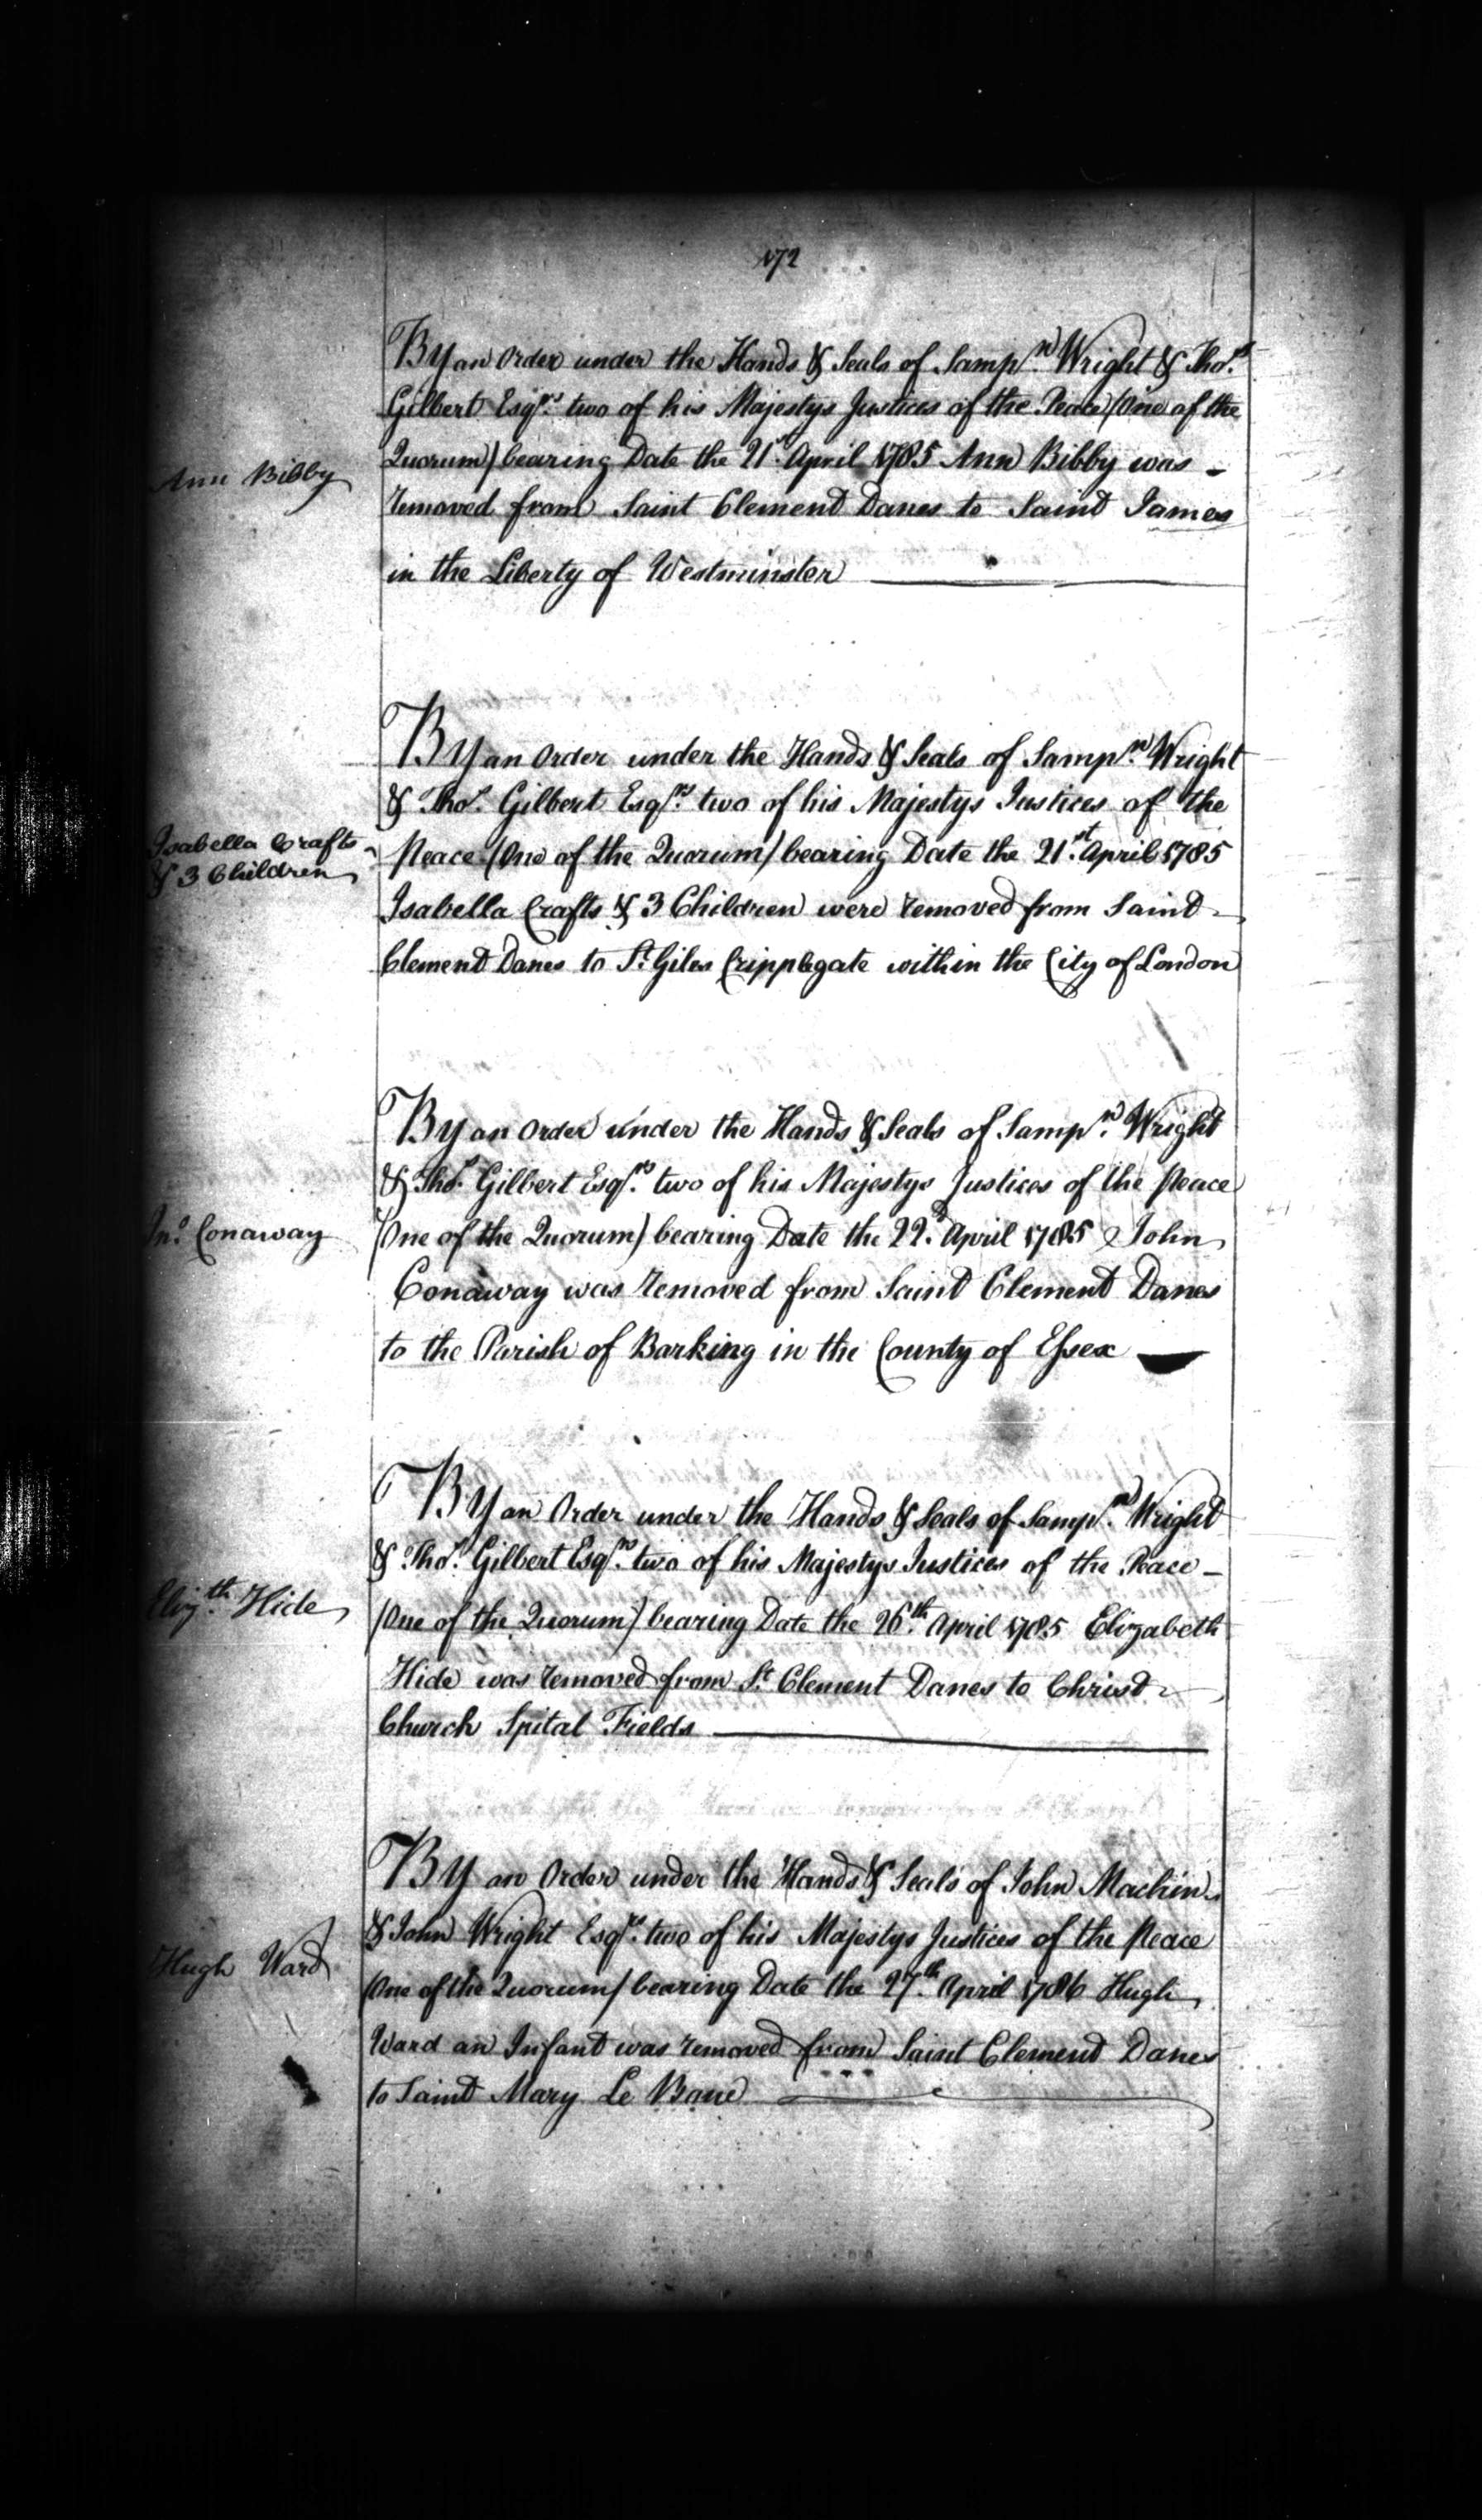 172
By an Order under the Hands & Seals of Sampn. Wright & Thos.
Gilbert Esqrs. two of his Majestys Justices of the Peace (One of the
Ann Bibby
Quorum) bearing Date the 21st. April 1785 Ann Bibby was
removed from Saint Clement Danes to Saint James
in the Liberty of Westminster
By an Order under the Hands & Seals of Sampn. Wright
& Thos. Gilbert Esqrs. two of his Majestys Justices of the
Isabella Crafts
& 3 Children
Peace (One of the Quorum) bearing Date the 21st. April 1785
Isabella Crafts & 3 Children were removed from Saint
Clement Danes to St. Giles Cripplegate within the City of London
By an Order under the Hands & Seals of Sampn. Wright
& Thos. Gilbert Esqrs. two of his Majestys Justices of the Peace
Jno. Conaway
(One of the Quorum) bearing Date the 22d. April 1785 John
Conaway was removed from Saint Clement Danes
to the Parish of Barking in the County of Essex
By an Order under the Hands & Seals of Sampn. Wright
& Thos. Gilbert Esqrs. two of his Majestys Justices of the Peace
Elizth. Hide
(One of the Quorum) bearing Date the 26th. April 1785 Elizabeth
Hide was removed from St. Clement Danes to Christ
Church Spital Fields
By an Order under the Hands & Seals of John Machin
& John Wright Esqrs. two of his Majestys Justices of the Peace
Hugh Ward
(One of the Quorum) bearing Date the 27th. April 1786 Hugh
Ward an Infant was removed from Saint Clement Danes
to Saint Mary Le Bane